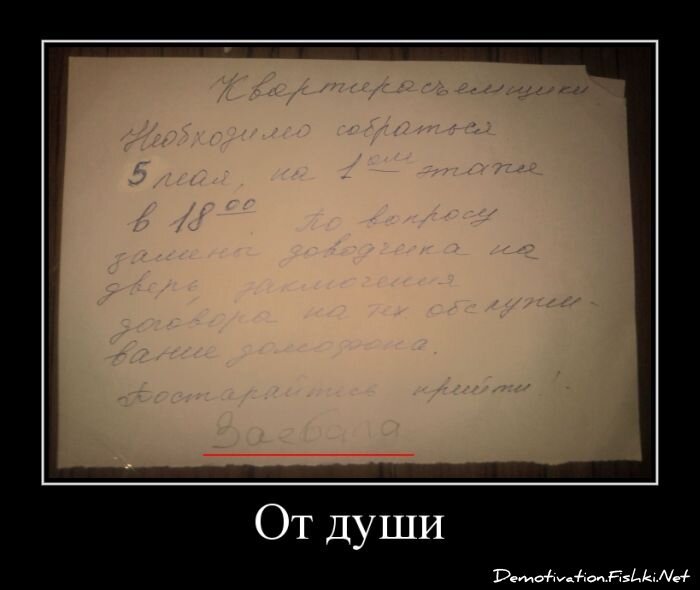 Квартирасъемщики
Необходимо собраться
5 мая, на 1ом этаже
в 18 00 По вопросу
замены доводчика на
дверь, заключения
договора на тех обслужи-
вание домофона.
Постарайтесь прийти!
Заебала
От души
Demotivation.Fishki.Net